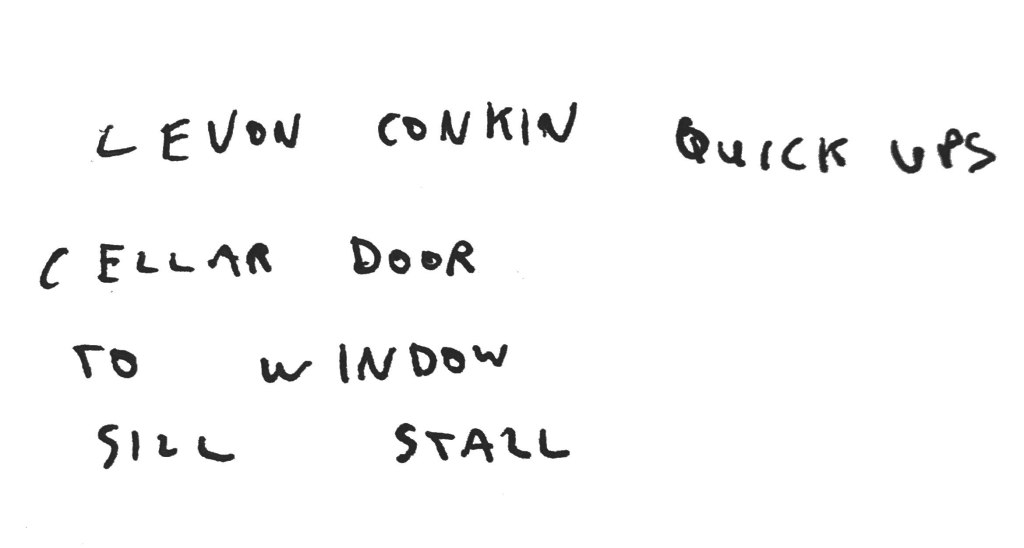 LEVON CONKIN QUICK UPS
CELLAR DOOR
TO WINDOW
SILL STALL